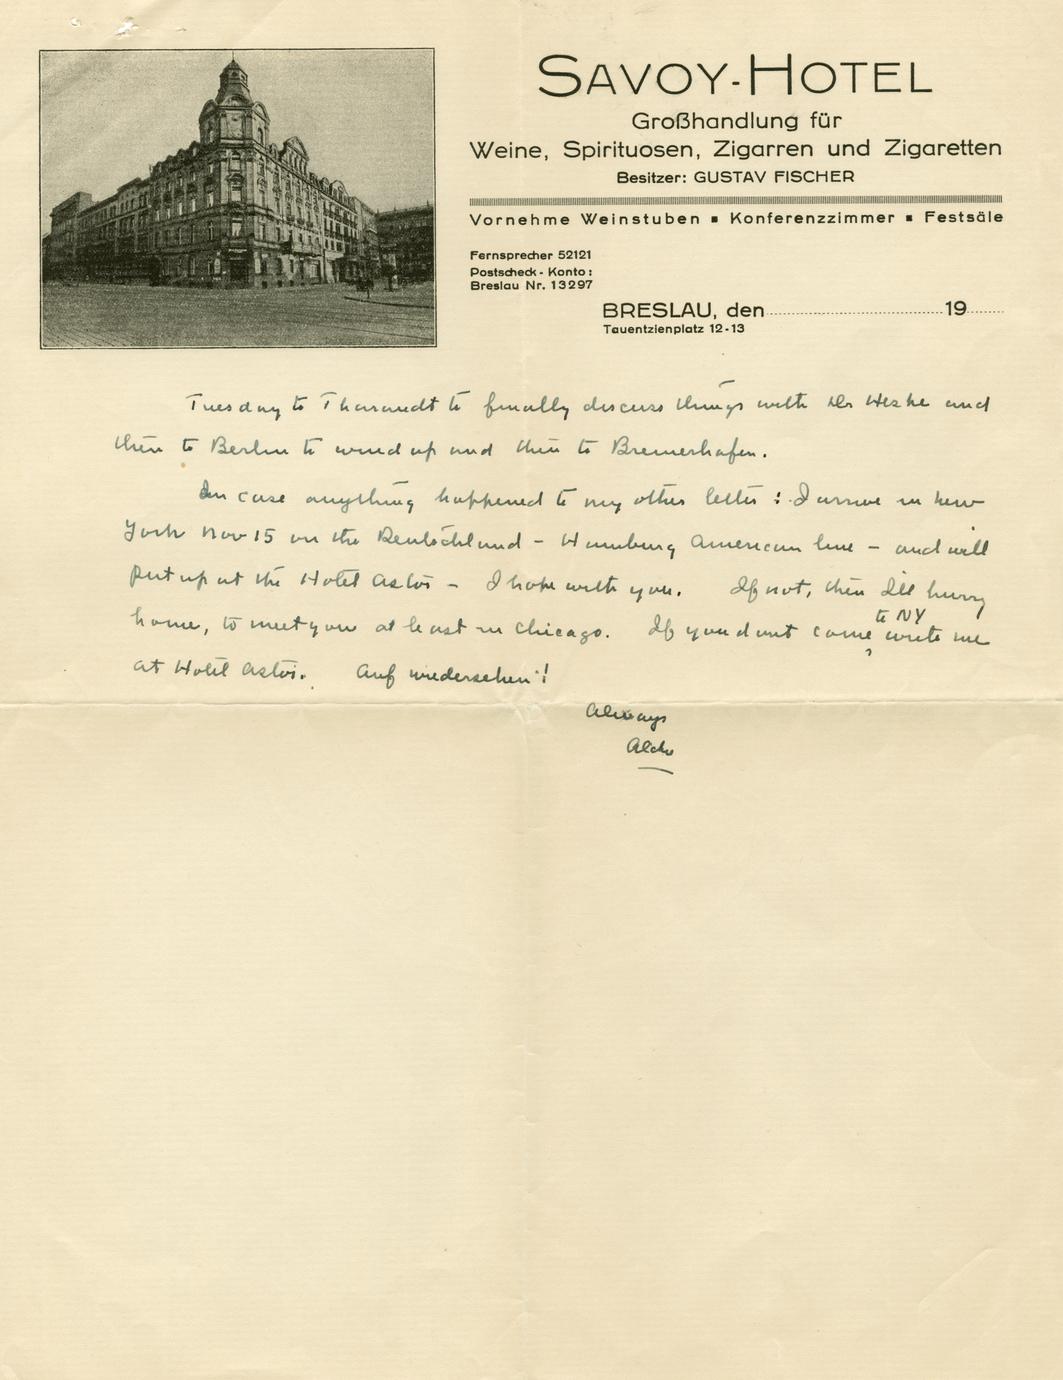 SAVOY-HOTEL
Großhandlung für
Weine, Spirituosen, Zigarren und Zigaretten
Besitzer: GUSTAV FISCHER
Vornehme Weinstuben ▪ Konferenzzimmer ▪ Festsäle
Fernsprecher 52121
Postscheck-Konto:
Breslau Nr. 13297
BRESLAU, den 19
Tauentzienplatz 12-13
Tuesday to Tharandt to finally discuss things with Dr Heske and
then to Berlin to wind up and then to Bremerhafen.
In case anything happened to my other letter: I arrive in New
York Nov 15 on the Deutschland – Hamburg American line – and will
put up at the Hotel Astor – I hope with you. If not, then I'll hurry
home, to meet you at least in Chicago. If you dont come to NY write me
at Hotel Astor. Auf wiedersehen!
Always